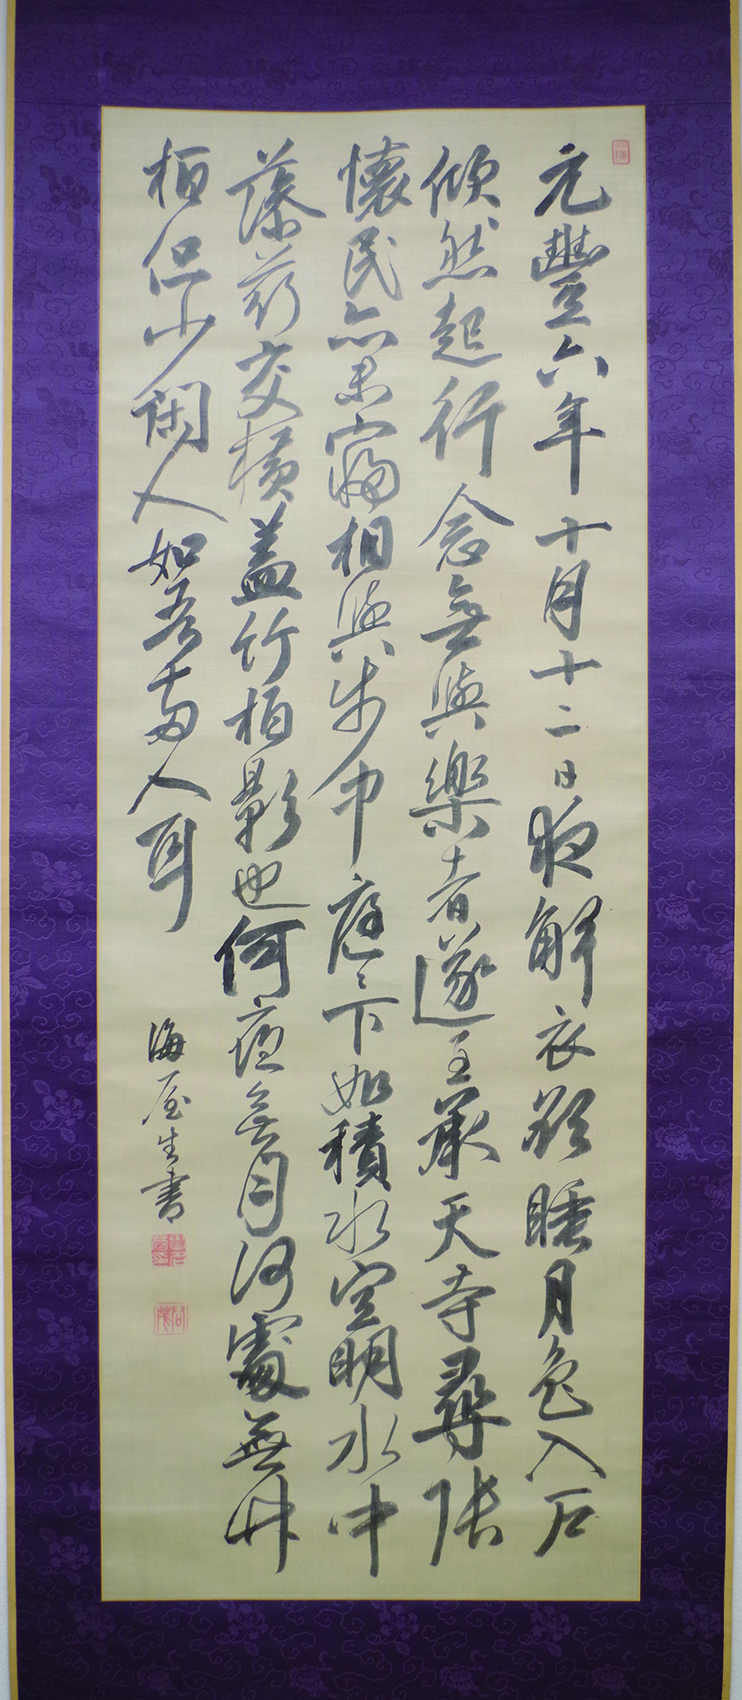 元豐六年十月十二日夜解衣欲睡月色入戶
然起行念無與樂者遂至承天寺尋張
懷民亦未寢相與步中庭々下如積水空明水中
藻荇交橫蓋竹柏影也何夜無月何處無竹
柏但少閑人如吾兩人耳
海屋生書